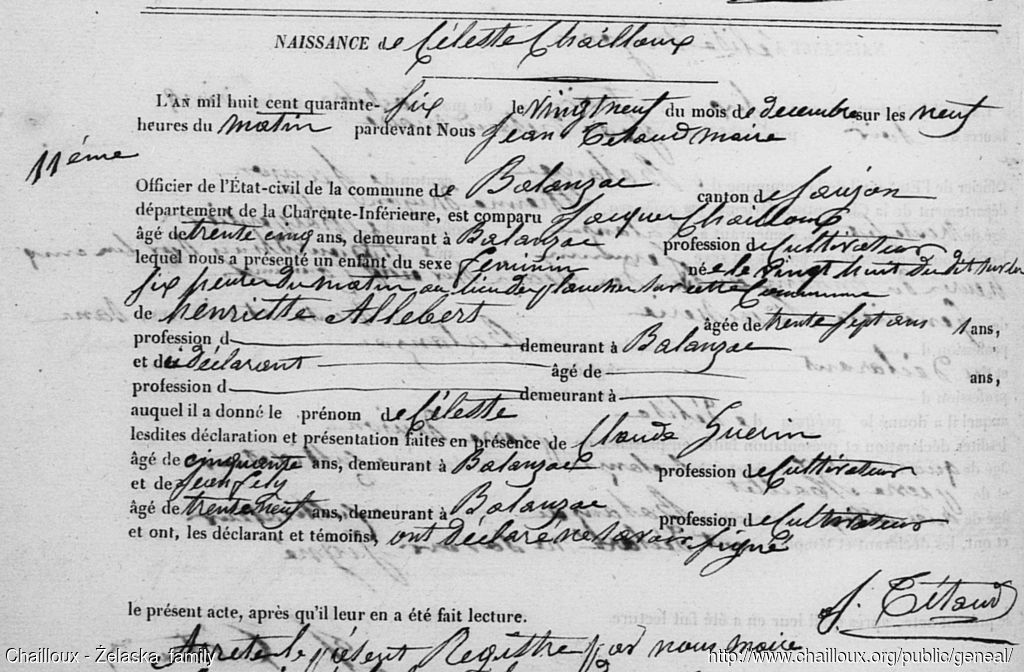 NAISSANCE de Céleste Chailloux
L'AN mil huit cent quarante-six le vingt neuf du mois de décembre sur les neuf
heures du matin pardevant Nous Jean Tétaud maire
11ème
Officier de l'État-civil de la commune de Balanzac canton de Saujon
département de la Charente-Inférieure, est comparu Jacques Chailloux
âgé de trente cinq ans, demeurant à Balanzac profession de Cultivateur
lequel nous a présenté un enfant du sexe féminin née le vingt huit du dit sur les
six heures du matin au lieu de plancher sur cette Commune
de henriette Allebert âgée de trente sept ans ans,
profession d demeurant à Balanzac
et du déclarant âgé de ans,
profession d demeurant à
auquel il a donné le prénom de Céleste
lesdites déclaration et présentation faites en présence de Claude Guerin
âgé de cinquante ans, demeurant à Balanzac profession de Cultivateur
et de Jean Fely
âgé de trente neuf ans, demeurant à Balanzac profession de Cultivateur
et ont, les déclarant et témoins, ont déclaré ne savoir signé
le présent acte, après qu'il leur en a été fait lecture.
J. Tétaud
Arrêté le présent Registre par nous maire
Chailloux - Želaska family
http://www.chailloux.org/public/geneal/